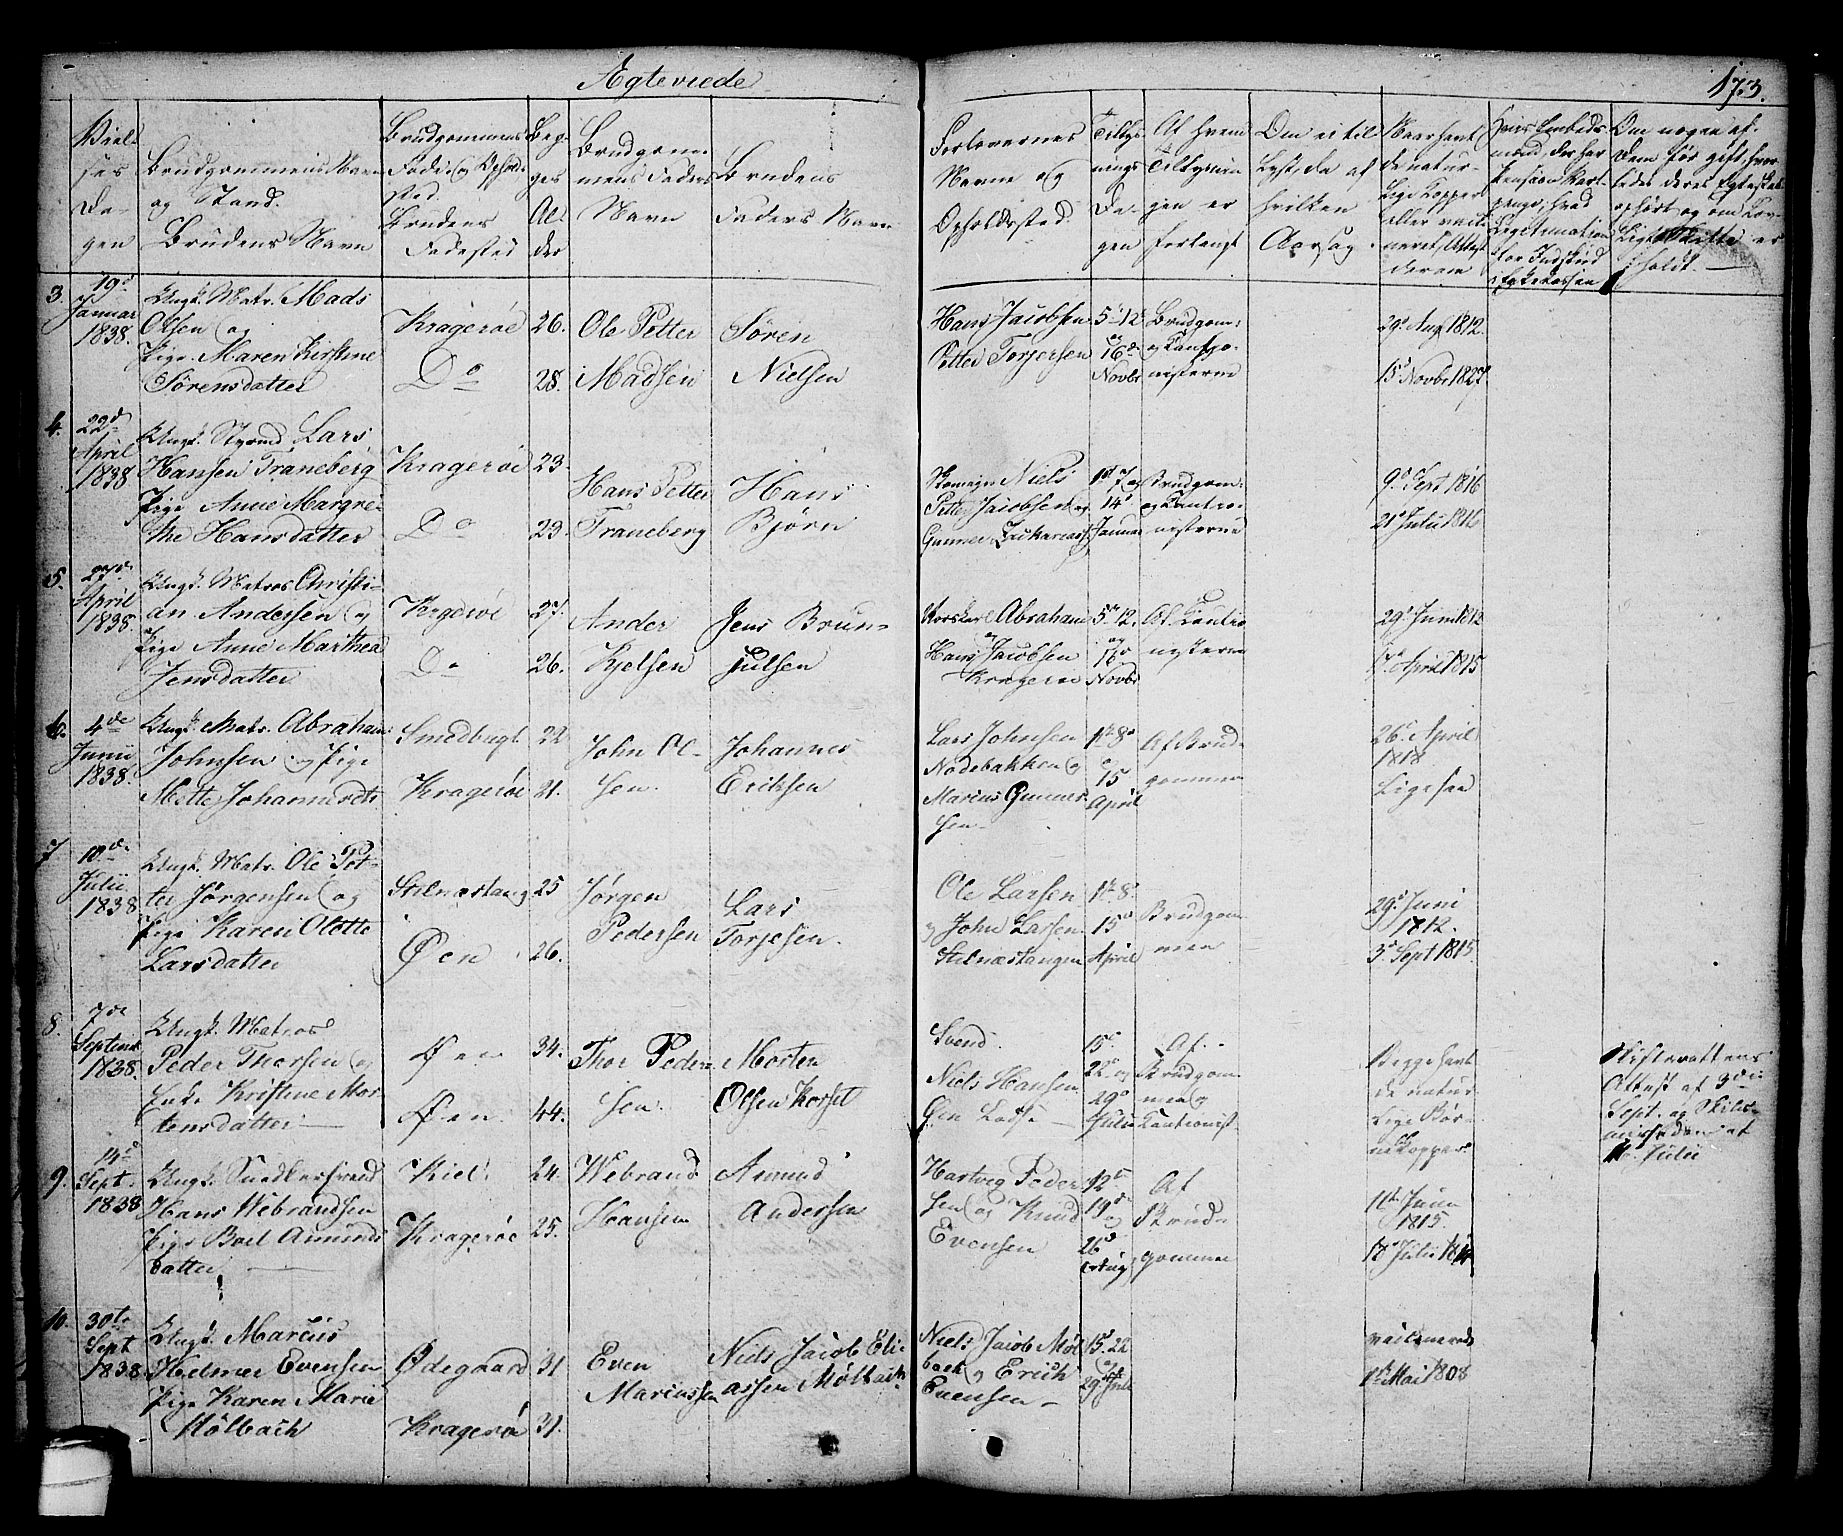 Ægteviede
173.
Viel-
ses
Da-
gen
Brudgommens Navn
og Stand.
Brudens Navn
Brudgommens
Føde og Opholds
sted.
Brudens
Fødested
Beg-
ges
Al-
der
Brudgom-
mens Faders
Navn
Brudens
Faders Navn
Forlovernes
Navne og
Opholdssted.
Tillys-
nings
Da-
gen
Af hvem
Tillysnin
gen er
forlangt
Om ei til
lyst, da af
hvilken
Aarsag.
Naar havt
de natur-
lige Kopper
eller vacci
neret, Attest
derom
Om nogen af
Dem før gift, hvor
ledes deres Egteskab
ophørt og om Lov-
ligt Skifte er
holdt.
3.
19d
Januar
1838.
Ungk. Matr. Mads
Olsen og
Pige Maren Kirstine
Sørensdatter
Kragerøe
Do
26.
28.
Ole Petter
Madsen
Søren
Nielsen
Hans Jacobsen
Petter Torjersen
5. 12
og
16d
Novbr
Brudgom:
og Cautio-
nisterne
29d Aug 1812.
15d Novbr 1827.
4.
22d
April
1838
Ungk. Styrmd Lars
Hansen Traneberg
Pige Anne Margre-
the Hansdatter
Kragerøe
Do
23.
23.
Hans Petter
Traneberg
Hans
Bjørn
Skomager Niels
Petter Jacobsen og
Gunner Zachariass
1d 7 og
14d
Januar
Brudgom:
og Cautio-
nisterne
9d Sept 1816
21d Julii 1816
5.
27d
April
1838.
Ungk. Matros Christi-
an Andersen og
Pige Anne Marthea
Jensdatter
Kragerøe
Do
27.
26.
Ander
Kjelsen
Jens Brun-
julsen
Abraham
og
Hans Jacobsen
Kragerøe
5. 12.
og
16d
Novbr
Af Cautio
nisterne
29d Juni 1812
17d April 1815
6.
4de
Junii
1838.
Ungk. Matr. Abraham
Johnsen og Pige
Mette Johannesdtr
Smedbugt
Kragerøe
22
21.
John Ol-
sen.
Johannes
Eriksen
Lars Johnsen
Nødebakken og
Marius Gunner-
sen
1. 8d
og
15
April
Af Brud-
gommen
26d April
1818
Ligesaa
7
10de
Julii
1838
Ungk. Matr. Ole Pet-
ter Jørgensen og
Pige Karen Olette
Larsdatter
Stilnæstang
Øen
25
26.
Jørgen
Pedersen
Lars
Torjesen.
Ole Larsen
og John Larsen
Stilnæstangen
1. 8.
15d
April
Brudgom
men
29d Juni
1812.
3d Sept 1815.
8.
7de
Septemb
1838.
Ungk. Matros
Peder Thorsen og
Enke Kristine Mor-
tensdatter
Øen
Øen
34.
44.
Thor Peder-
sen.
Morten
Olsen Korset
Svend
Niels Hansen
Øen
15d
22d og
29d
Julii
Af
Brudgom
men og
Cautionist.
Begge havt
de natur-
lige Bør-
nekopper.
Skifterettens
Attest af 3die
Sept. og
16. Julii
9.
14d
Sept.
1838
Ungk. Snedkersvend
Hans Webrandsen
Pige Boel Amunds
datter
Kiel
Kragerøe
24.
25.
Webrand
Hansen
Amund
Andersen
Hartvig Peder
sen og Knud
Evensen
12d
19d
og
26d
Aug
Af
Brud-
gommen
11d Juni
1815.
18d Julii 1814
10.
30te
Sept
1838
Ungk. Marcus
Helmer Evensen
Pige Karen Marie
Mølbach
Ødegaard
Kragerøe
31
31.
Even
Mariussen
Niels Jacob Elie-
assen Mølbach
Niels Jacob Møl
bach og Erich
Evensen
15d 22
og
29d Juli
vaccinerede
1d Mai 1808